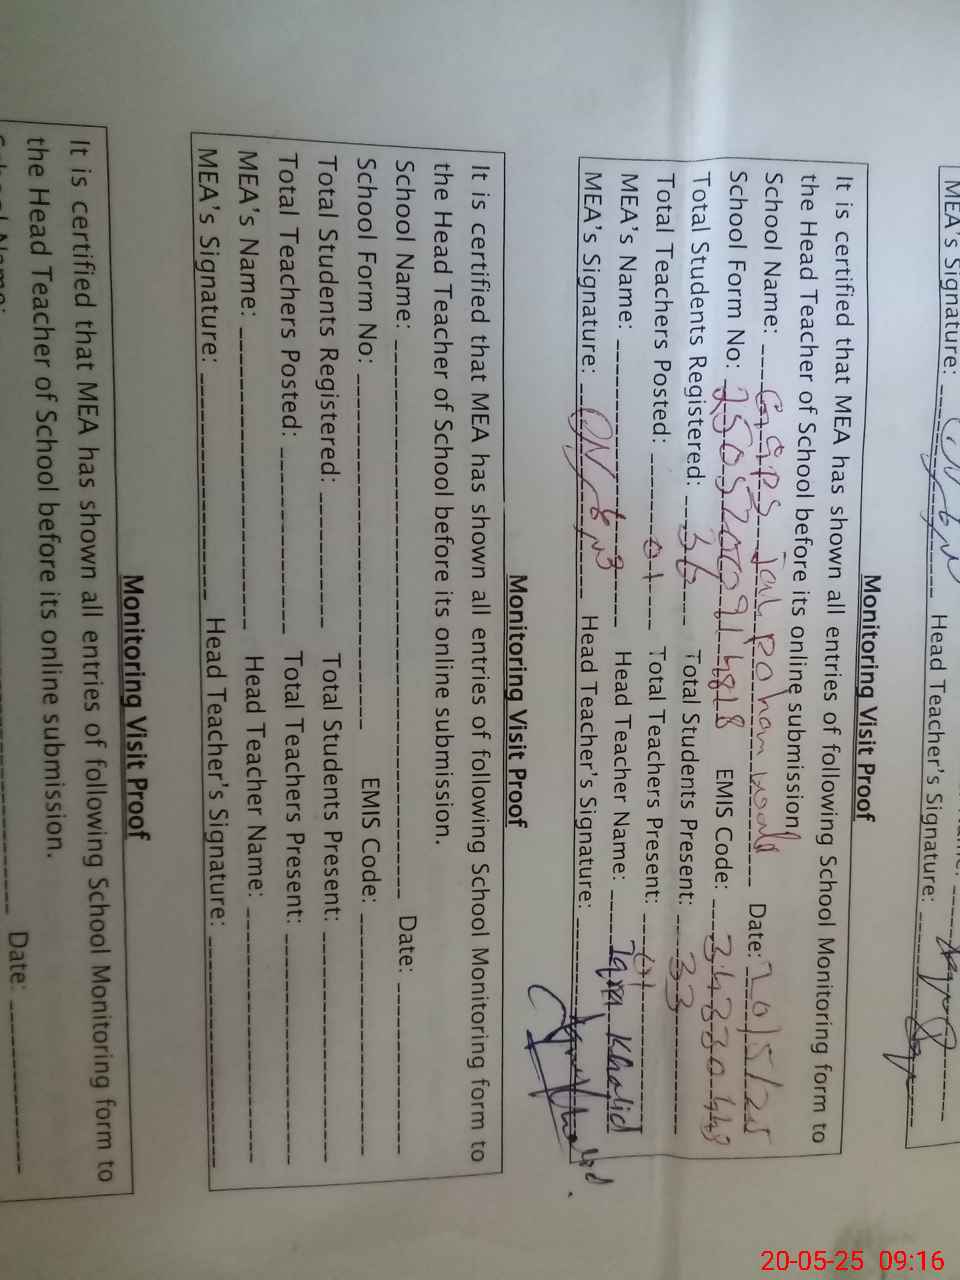 MEA's Signature: Head Teacher's Signature:
Monitoring Visit Proof
It is certified that MEA has shown all entries of following School Monitoring form to
the Head Teacher of School before its online submission.
School Name: GGPS Date: 20/5/25
School Form No: EMIS Code:
Total Students Registered: 36 Total Students Present: 33
Total Teachers Posted: 01 Total Teachers Present: 01
MEA's Name: Head Teacher Name: Iqra Khalid
MEA's Signature: Head Teacher's Signature:
Monitoring Visit Proof
It is certified that MEA has shown all entries of following School Monitoring form to
the Head Teacher of School before its online submission.
School Name: Date:
School Form No: EMIS Code:
Total Students Registered: Total Students Present:
Total Teachers Posted: Total Teachers Present:
MEA's Name: Head Teacher Name:
MEA's Signature: Head Teacher's Signature:
Monitoring Visit Proof
It is certified that MEA has shown all entries of following School Monitoring form to
the Head Teacher of School before its online submission.
Date:
20-05-25 09:16